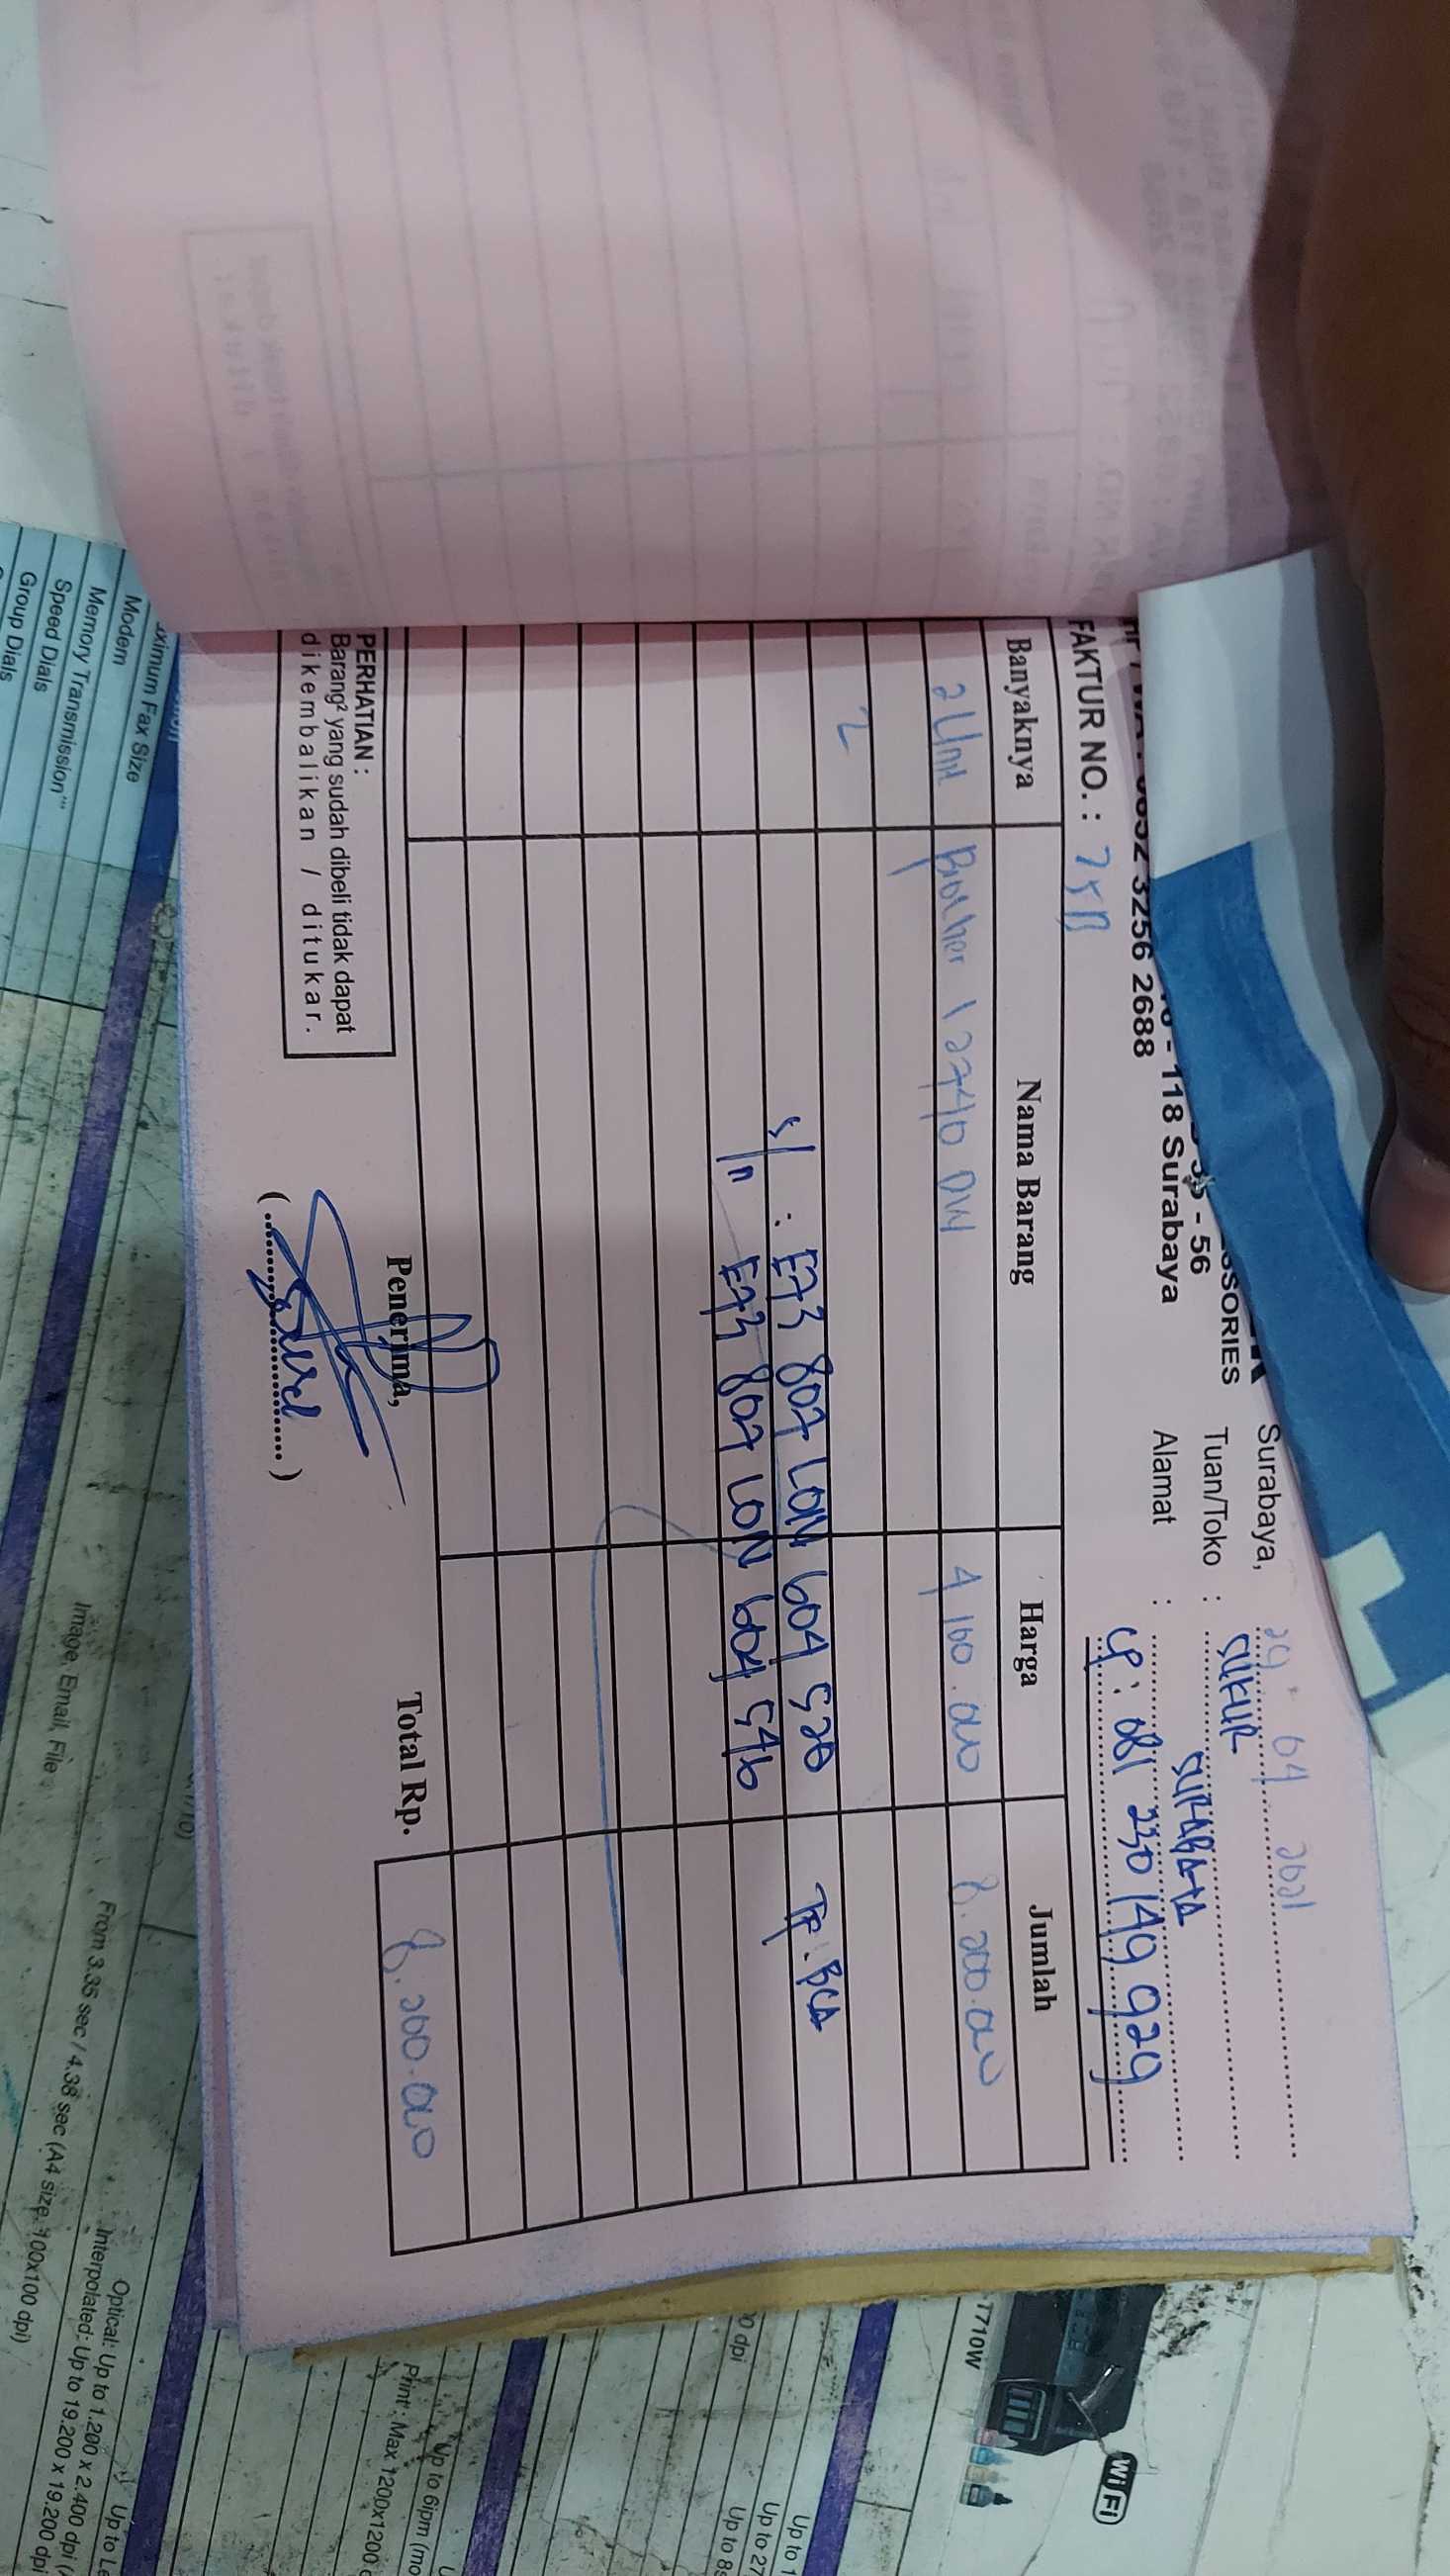 SSORIES
- 56
- 118 Surabaya
0852 3256 2688
FAKTUR NO. :
Surabaya, 29 - 04 2021
Tuan/Toko : CUKUR
Alamat : SURABAYA
CP : 081 230 149 929
Banyaknya Nama Barang Harga Jumlah
2 Unit Brother L2740 DW 4 100.000 8.200.000
2
s/n : E73 807 LON 604 520 TF. BCA
s/n E73 807 LON 604 546
PERHATIAN :
Barang² yang sudah dibeli tidak dapat
dikembalikan / ditukar.
Penerima,
Total Rp. 8.200.000
(........................)
T710W
WiFi
Maximum Fax Size
Modem
Memory Transmission
Speed Dials
Group Dials
Image, Email, File
From 3.35 sec / 4.38 sec (A4 size, 100x100 dpi)
Optical: Up to 1.200 x 2.400 dpi
Interpolated: Up to 19.200 x 19.200 dpi
Print : Max 1200x1200
Up to 6ipm